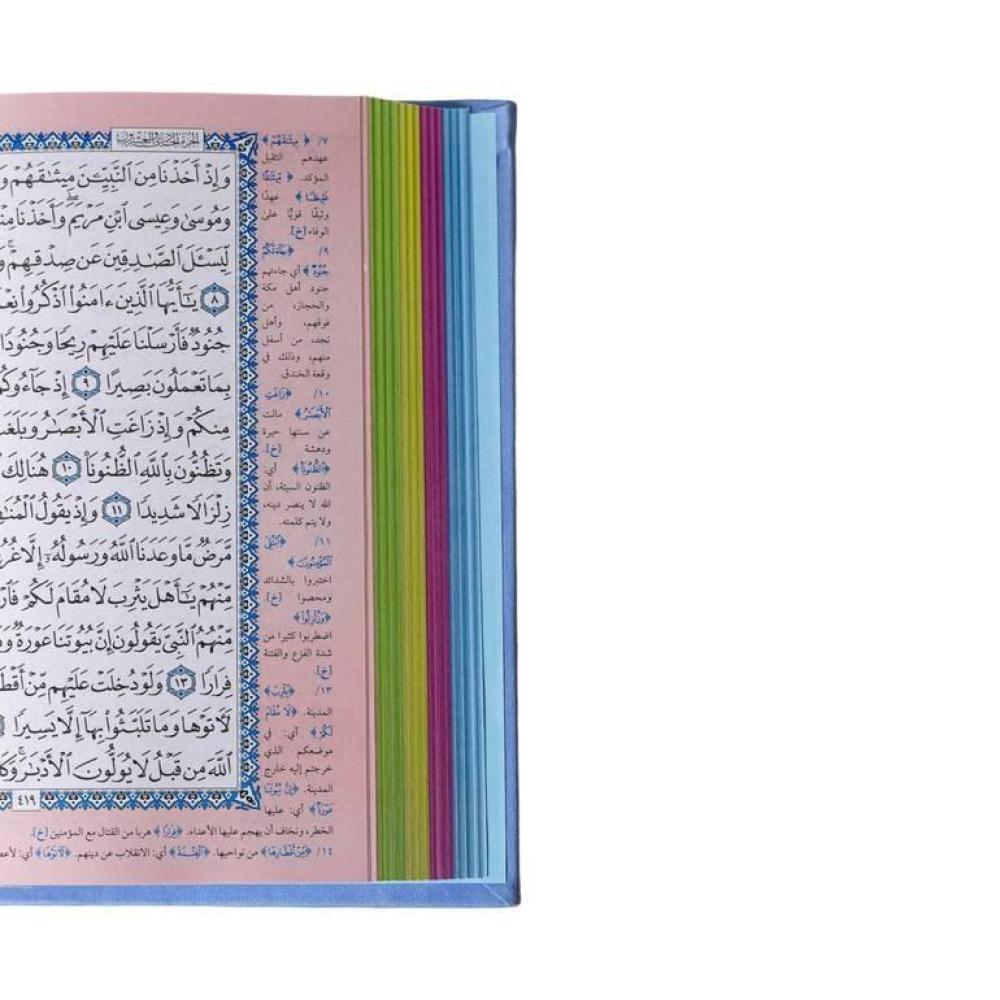 الجزء الحادي والعشرون
وَإِذْ أَخَذْنَا مِنَ النَّبِيِّـۧنَ مِيثَٰقَهُمْ
وَمُوسَىٰ وَعِيسَى ابْنِ مَرْيَمَۖ وَأَخَذْنَا
لِّيَسْـَٔلَ الصَّٰدِقِينَ عَن صِدْقِهِمْۚ
٨ يَٰٓأَيُّهَا الَّذِينَ ءَامَنُوا۟ اذْكُرُوا۟
جُنُودٌ فَأَرْسَلْنَا عَلَيْهِمْ رِيحًا وَجُنُودًا
بِمَا تَعْمَلُونَ بَصِيرًا ٩ إِذْ جَآءُوكُ
مِنكُمْ وَإِذْ زَاغَتِ الْأَبْصَٰرُ وَبَلَغَ
وَتَظُنُّونَ بِاللَّهِ الظُّنُونَا۠ ١٠ هُنَالِكَ
زِلْزَالًا شَدِيدًا ١١ وَإِذْ يَقُولُ
مَّرَضٌ مَّا وَعَدَنَا اللَّهُ وَرَسُولُهُۥٓ إِلَّا
مِّنْهُمْ يَٰٓأَهْلَ يَثْرِبَ لَا مُقَامَ لَكُمْ
مِّنْهُمُ النَّبِيَّ يَقُولُونَ إِنَّ بُيُوتَنَا عَوْرَةٌ
فِرَارًا ١٣ وَلَوْ دُخِلَتْ عَلَيْهِم مِّنْ
لَأَتَوْهَا وَمَا تَلَبَّثُوا۟ بِهَآ إِلَّا يَسِيرًا
اللَّهَ مِن قَبْلُ لَا يُوَلُّونَ الْأَدْبَٰرَۚ
٤١٩
٧/ ﴿مِيثَٰقَهُمْ﴾
عهدهم الثقيل
المؤكد. ﴿مِيثَٰقًا
غَلِيظًا﴾ عهدًا
وثيقًا قويًّا على
الوفاء [خ].
٩/ ﴿جَآءَتْكُمْ
جُنُودٌ﴾ أي جاءتهم
جنود أهل مكة
والحجاز، من
فوقهم، وأهل
نجد، من أسفل
منهم، وذلك في
وقعة الخندق.
١٠/ ﴿زَاغَتِ
الْأَبْصَٰرُ﴾ مالت
عن سننها حيرة
ودهشة [خ].
﴿الظُّنُونَا۠﴾ أي:
الظنون السيئة، أن
الله لا ينصر دينه،
ولا يتم كلمته.
١١/ ﴿ابْتُلِيَ
الْمُؤْمِنُونَ﴾
اختبروا بالشدائد
ومحصوا [خ].
﴿وَزُلْزِلُوا۟﴾
اضطربوا كثيرا من
شدة الفزع والفتنة
[خ].
١٣/ ﴿يَثْرِبَ﴾
المدينة. ﴿لَا مُقَامَ
لَكُمْ﴾ أي: في
موضعكم الذي
خرجتم إليه خارج
المدينة. ﴿إِنَّ بُيُوتَنَا
عَوْرَةٌ﴾ أي: عليها
الخطر، ونخاف أن يهجم عليها الأعداء. ﴿فِرَارًا﴾ هربا من القتال مع المؤمنين [خ].
١٤/ ﴿مِّنْ أَقْطَارِهَا﴾ من نواحيها. ﴿الْفِتْنَةَ﴾ أي: الانقلاب عن دينهم. ﴿لَأَتَوْهَا﴾ أي: